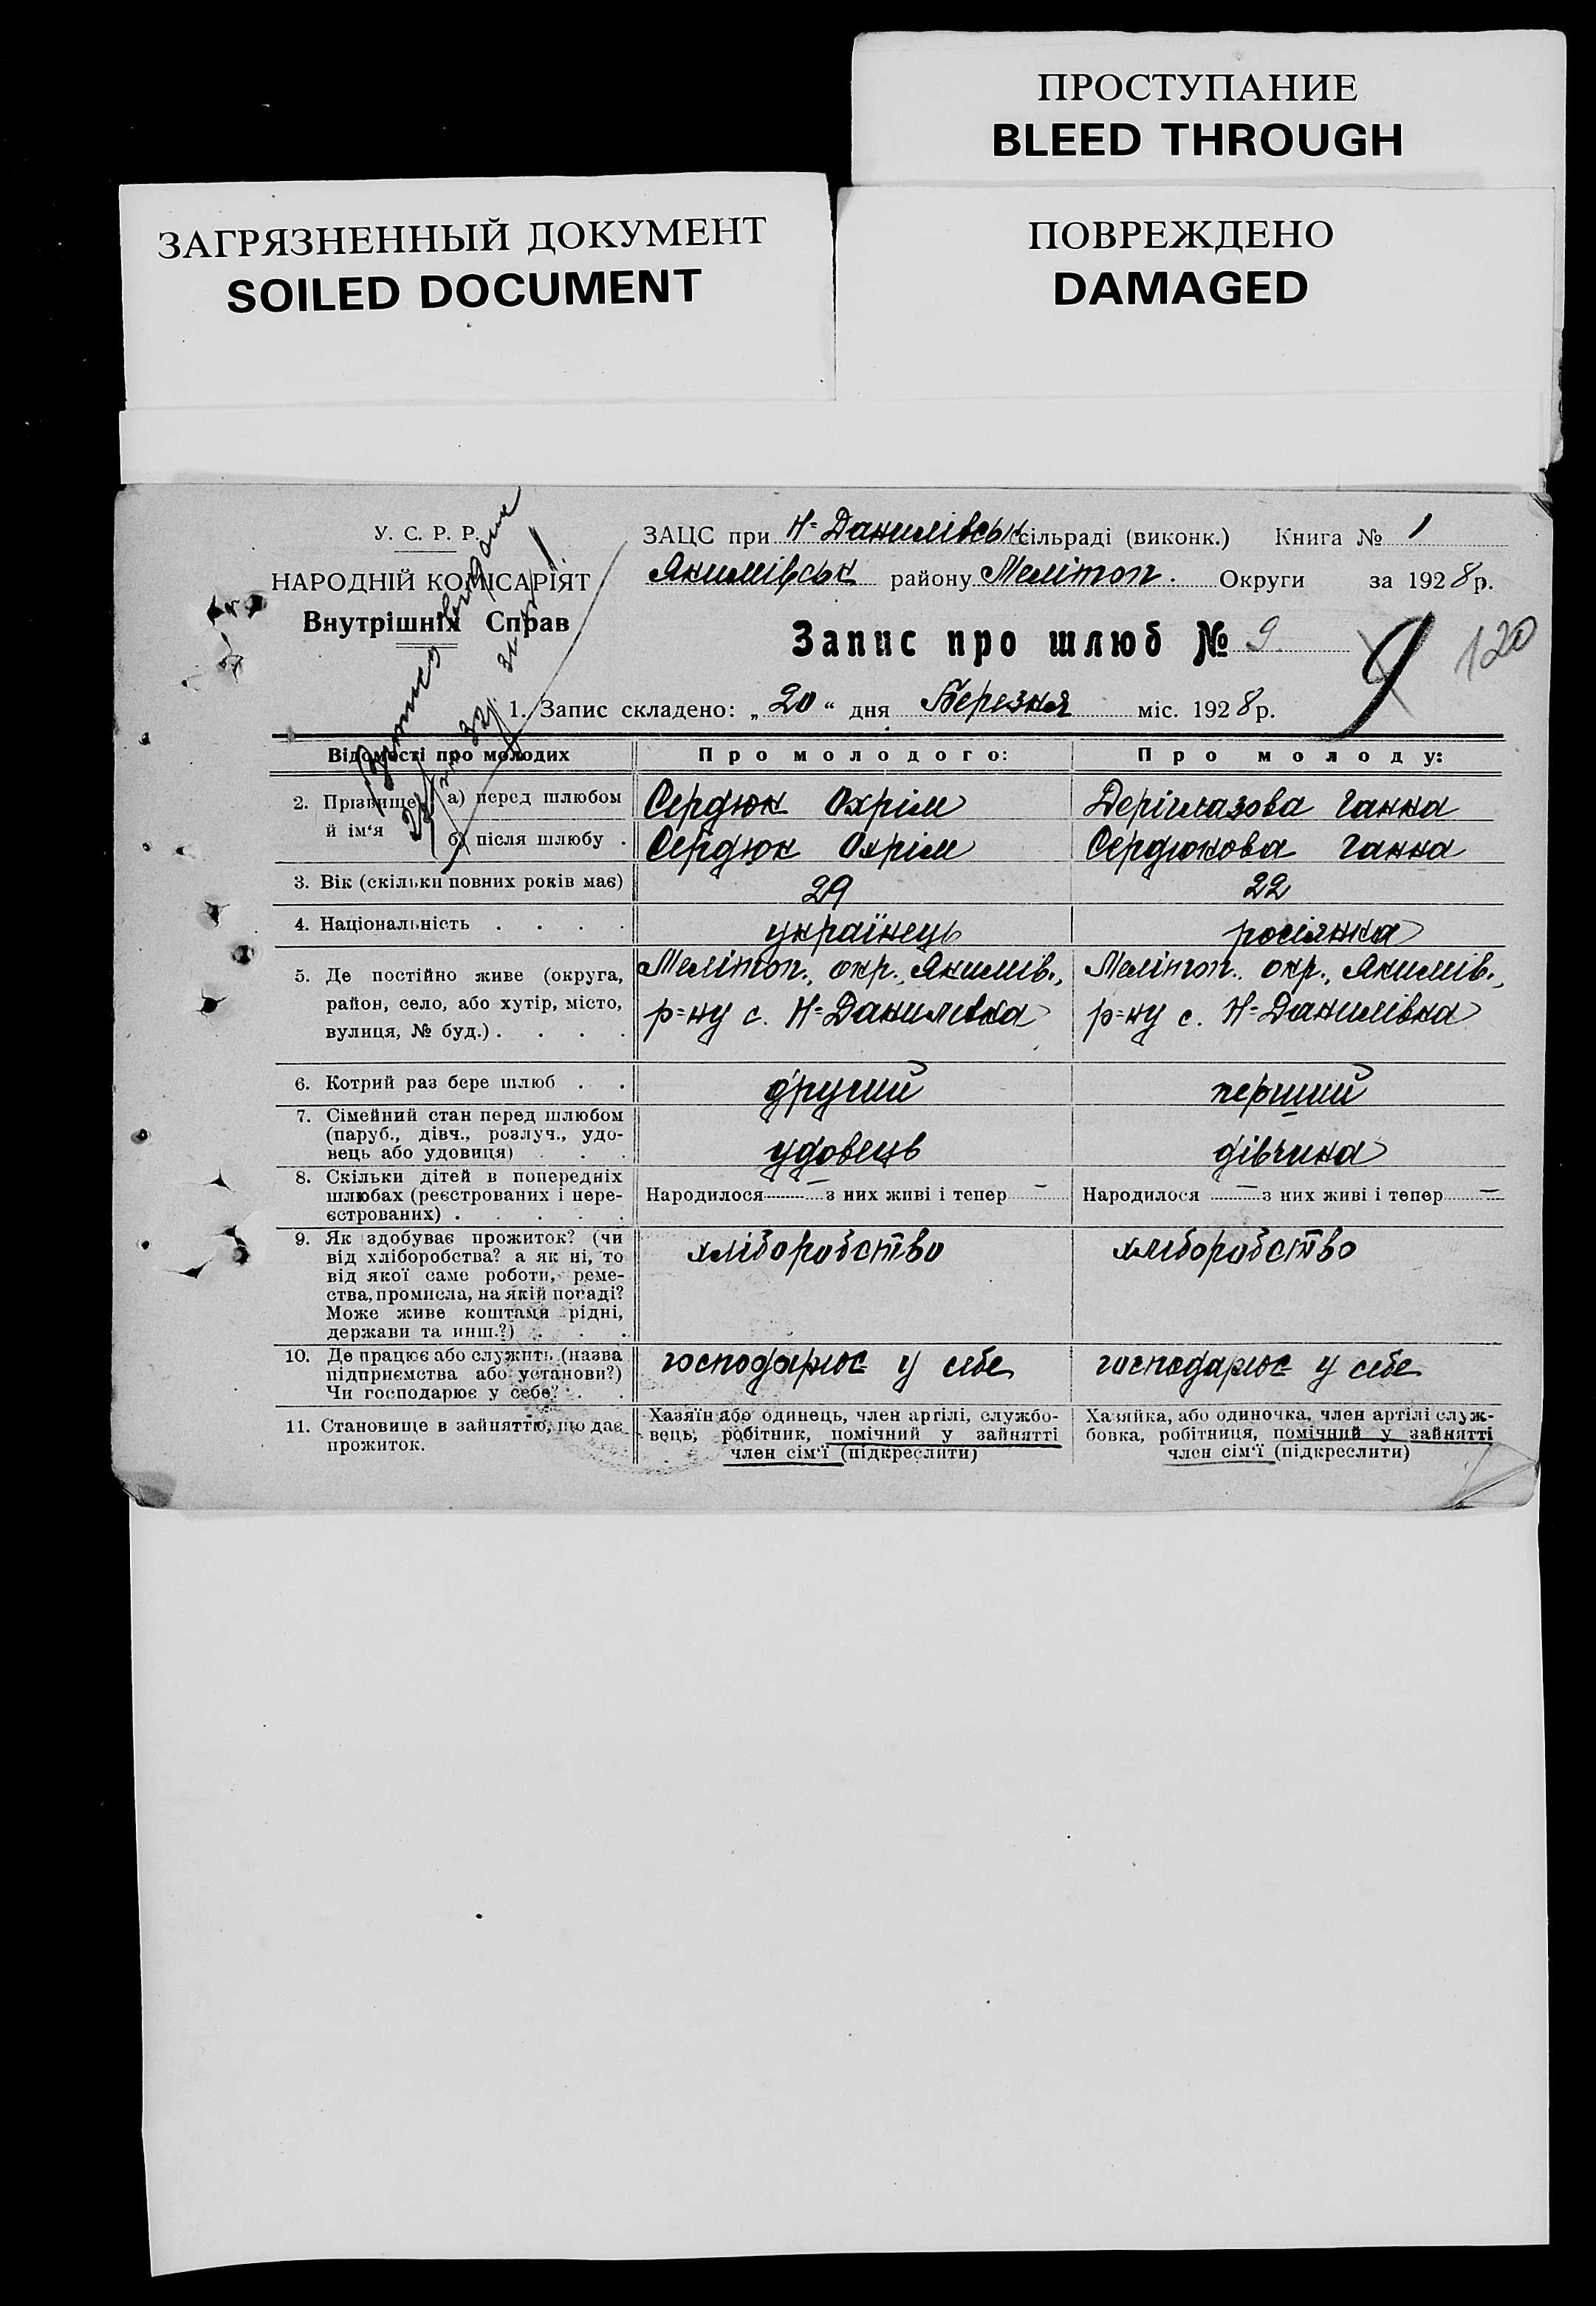 ПРОСТУПАНИЕ
BLEED THROUGH
ЗАГРЯЗНЕННЫЙ ДОКУМЕНТ
SOILED DOCUMENT
ПОВРЕЖДЕНО
DAMAGED
У. С. Р. Р.
НАРОДНІЙ КОМІСАРІЯТ
Внутрішніх Справ
ЗАЦС при Н=Данилівськ сільраді (виконк.) Книга № 1
Якимівськ району Мелітоп. Округи за 1928 р.
Запис про шлюб № 9.
9
120
1. Запис складено: „20“ дня Березня міс. 1928 р.
Відомості про молодих
Про молодого:
Про молоду:
2. Прізвище й ім‘я
а) перед шлюбом
Сердюк Охрім
Деріглазова Ганна
б) після шлюбу .
Сердюк Охрім
Сердюкова Ганна
3. Вік (скільки повних років має)
29
22
4. Національність . . . .
українець
росіянка
5. Де постійно живе (округа,
район, село, або хутір, місто,
вулиця, № буд.) . . . .
Мелітоп., окр., Якимів.,
р=ну с. Н=Данилівка
Мелітоп. окр., Якимів.,
р=ну с. Н=Данилівка
6. Котрий раз бере шлюб . .
другий
перший
7. Сімейний стан перед шлюбом
(паруб., дівч., розлуч., удо-
вець або удовиця) . . .
удовець
дівчина
8. Скільки дітей в попередніх
шлюбах (реєстрованих і нере-
єстрованих) . . . . .
Народилося — з них живі і тепер —
Народилося — з них живі і тепер —
9. Як здобуває прожиток? (чи
від хліборобства? а як ні, то
від якої саме роботи, реме-
ства, промисла, на якій посаді?
Може живе коштами рідні,
держави та инш.?) . . .
хліборобство
хліборобство
10. Де працює або служить (назва
підприємства або установи?)
Чи господарює у себе? . .
господарює у себе
господарює у себе
11. Становище в зайняттю, що дає
прожиток.
Хазяїн або одинець, член артілі, службо-
вець, робітник, помічний у зайнятті
член сім‘ї (підкреслити)
Хазяйка, або одиночка, член артілі служ-
бовка, робітниця, помічний у зайнятті
член сім‘ї (підкреслити)